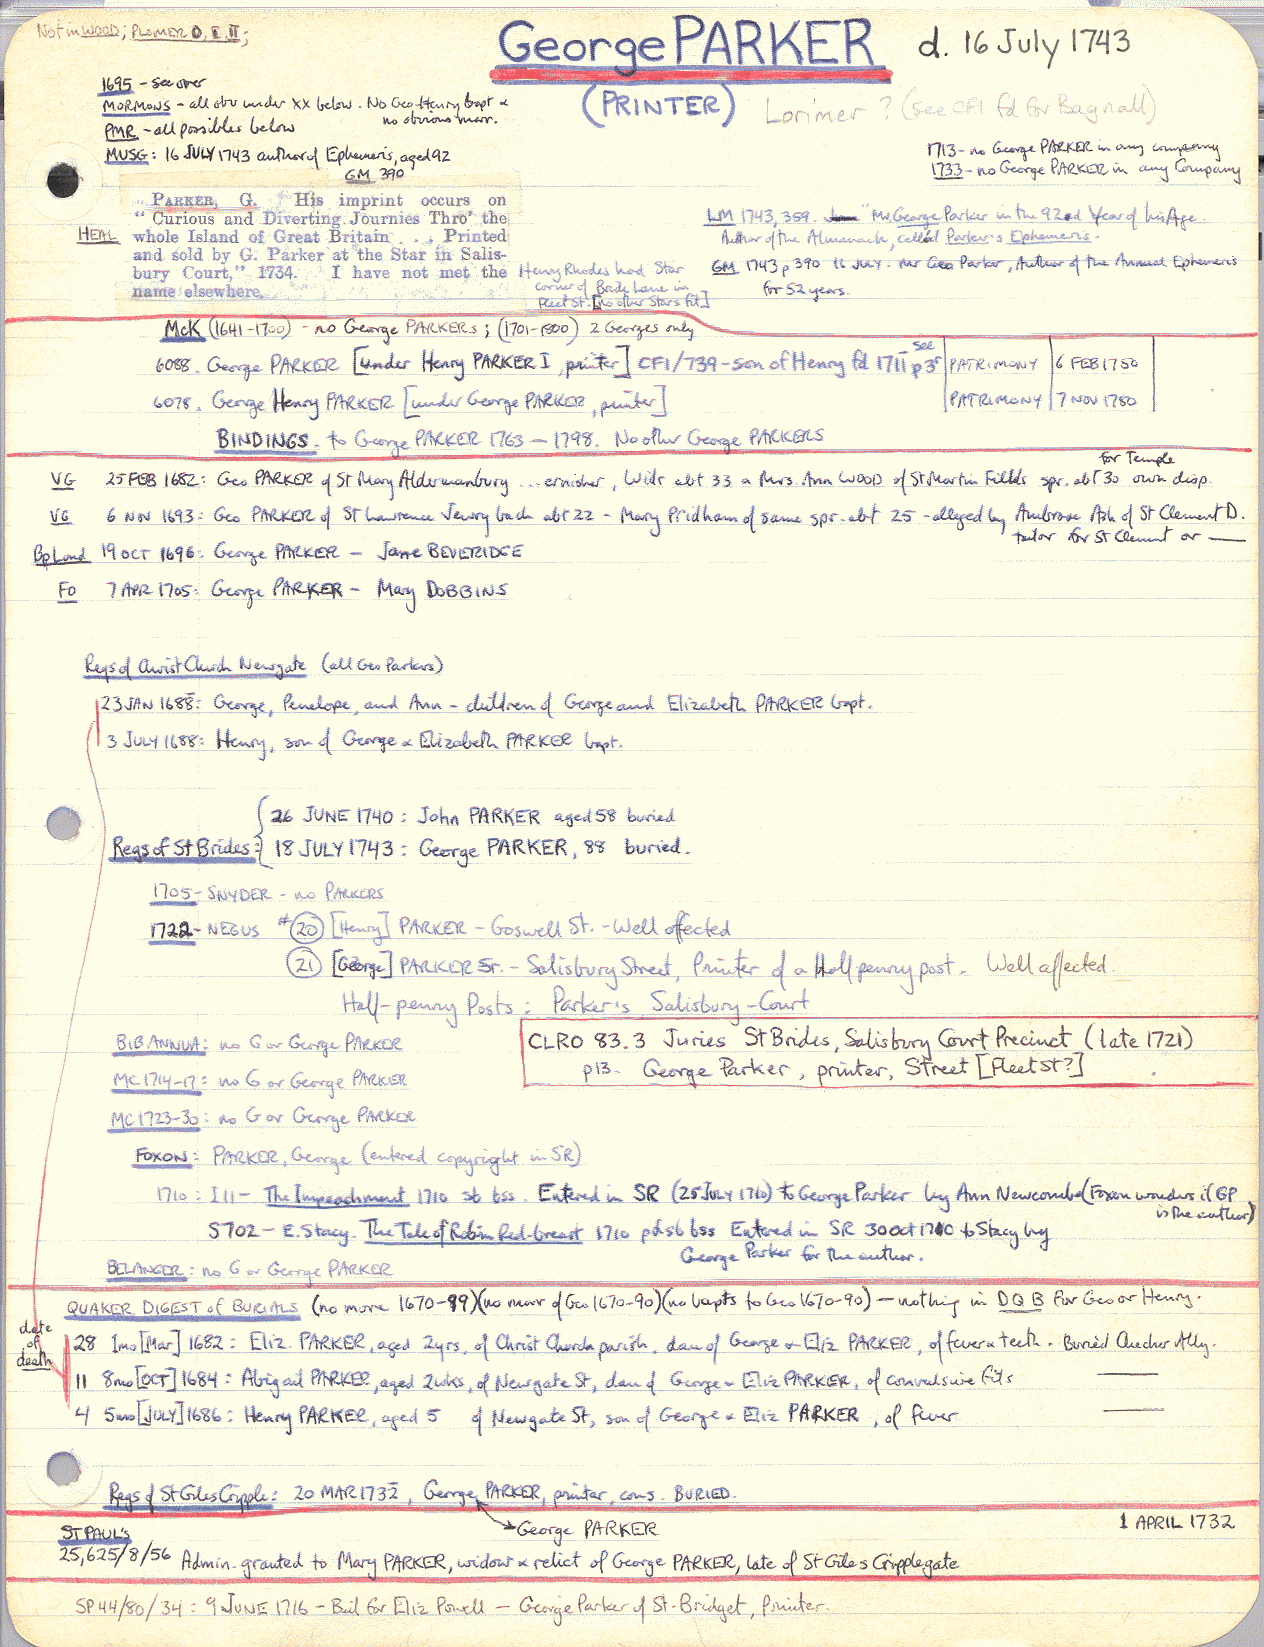 Not in WOOD; PLOMER O, I, II;
George PARKER d. 16 July 1743
(PRINTER) Lorimer ? (see CF1 fd for Bagnall)
1695 - see over
MORMONS - all obv under XX below. No Geo-Henry bapt &
no obvious marr.
PMR - all possibles below
MUSG: 16 JULY 1743 author of Ephemeris, aged 92
GM 390
1713 - no George PARKER in any company
1733 - no George PARKER in any Company
HEAL
PARKER, G. His imprint occurs on
"Curious and Diverting Journies Thro' the
whole Island of Great Britain . . . Printed
and sold by G. Parker at the Star in Salis-
bury Court," 1734. I have not met the
name elsewhere.
Henry Rhodes had Star
corner of Bride Lane in
Fleet St. [no other Stars fit]
LM 1743, 359. "Mr. George Parker in the 92nd Year of his Age.
Author of the Almanack, called Parker's Ephemeris.
GM 1743 p 390 16 July. Mr Geo Parker, Author of the Annual Ephemeris
for 52 years.
McK (1641-1700) - no George PARKERs; (1701-1800) 2 Georges only
6088. George PARKER [under Henry PARKER I, printer] CF1/739 - son of Henry fd 1711 - see p3r PATRIMONY 6 FEB 1750
6078. George Henry PARKER [under George PARKER, printer] PATRIMONY 7 NOV 1780
BINDINGS - to George PARKER 1763 - 1798. No other George PARKERS
VG 25 FEB 1682: Geo PARKER of St Mary Aldermanbury ... ernisher, Widr abt 33 & Mrs. Ann WOOD of St Martin Fields spr. abt 30 own disp.
for Temple
VG 6 NOV 1693: Geo PARKER of St Lawrence Jewry bach abt 22 - Mary Pridham of same spr. abt 25 - alleged by Ambrose Ash of St Clement D.
tailor for St Clement or ——
Bp Lond 19 OCT 1696: George PARKER - Jane BEVERIDGE
FO 7 APR 1705: George PARKER - Mary DOBBINS
Regs of Christ Church Newgate (all Geo Parkers)
23 JAN 1688: George, Penelope, and Ann - children of George and Elizabeth PARKER bapt.
3 JULY 1688: Henry, son of George & Elizabeth PARKER bapt.
26 JUNE 1740: John PARKER aged 58 buried
Regs of St Brides: 18 JULY 1743: George PARKER, 88 buried.
1705 - SNYDER - no PARKERS
1722 - NEGUS #20 [Henry] PARKER - Goswell St. - Well affected
21 [George] PARKER Sr. - Salisbury Street, Printer of a Halfpenny post. Well affected.
Half-penny Posts: Parker's Salisbury-Court
BIB ANNUA: no G or George PARKER
CLRO 83.3 Juries St Brides, Salisbury Court Precinct (late 1721)
p13. George Parker, printer, Street [Fleet St?]
MC 1714-17: no G or George PARKER
MC 1723-30: no G or George PARKER
FOXON: PARKER, George (entered copyright in SR)
1710: I11 - The Impeachment 1710 sb bss. Entered in SR (25 July 1710) to George Parker by Ann Newcombe (Foxon wonders if GP
is the author)
S702 - E. Stacy. The Tale of Robin Red-breast 1710 pd sb bss Entered in SR 30 Oct 1710 to Stacy by
George Parker for the author.
BELANGER: no G or George PARKER
QUAKER DIGEST of BURIALS (no more 1670-99) (no marr of Geo 1670-90) (no bapts to Geo 1670-90) - nothing in DQB for Geo or Henry.
date
of
death
28 1mo [Mar] 1682: Eliz. PARKER, aged 2yrs. of Christ Church parish, dau of George & Eliz PARKER, of fever & teeth. Buried Checker Ally.
11 8mo [OCT] 1684: Abigail PARKER, aged 2wks, of Newgate St, dau of George & Eliz PARKER, of convulsive fits ——
4 5mo [JULY] 1686: Henry PARKER, aged 5 of Newgate St, son of George & Eliz PARKER, of fever ——
Regs of St Giles Cripple: 20 MAR 1732, George PARKER, printer, cons. BURIED.
George PARKER
1 APRIL 1732
ST PAUL'S
25,625/8/56 Admin. granted to Mary PARKER, widow & relict of George PARKER, late of St Giles Cripplegate
SP 44/80/34: 9 JUNE 1716 - Bail for Eliz Powell - George Parker of St. Bridget, Printer.